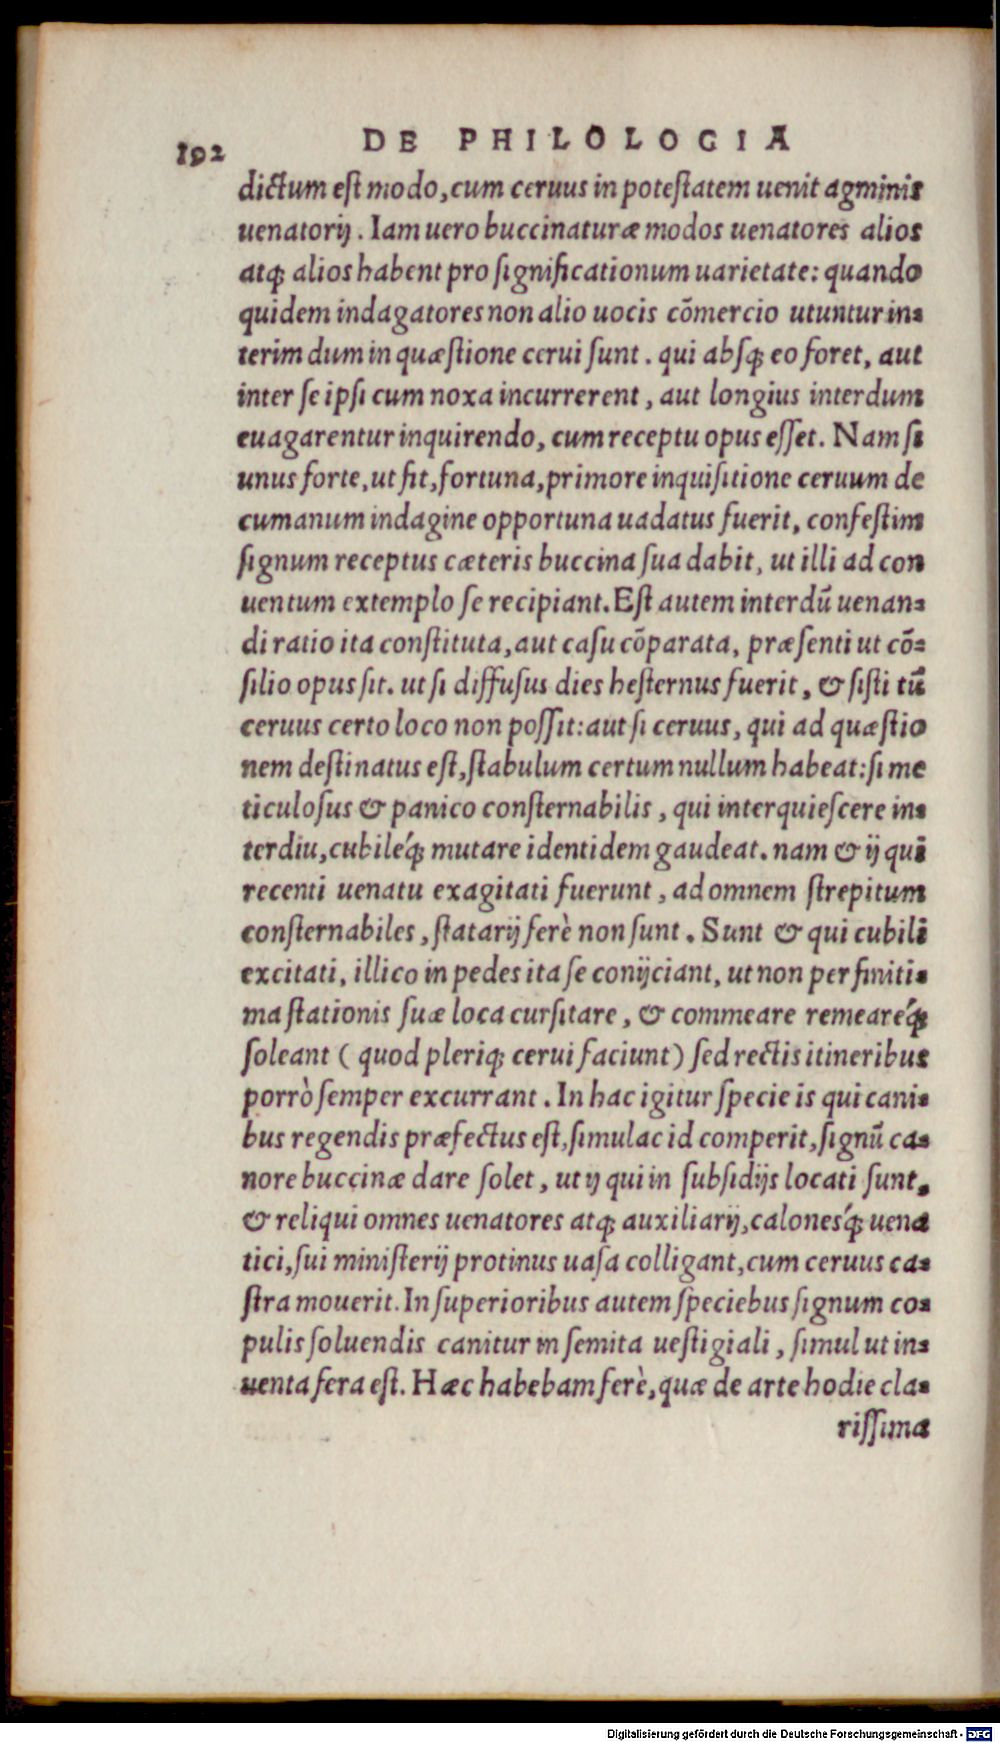 192 DE PHILOLOGIA
dictum est modo, cum ceruus in potestatem uenit agminis
uenatorij. Iam uero buccinaturæ modos uenatores alios
atq; alios habent pro significationum uarietate: quando
quidem indagatores non alio uocis cõmercio utuntur in-
terim dum in quæstione cerui sunt. qui absq; eo foret, aut
inter se ipsi cum noxa incurrerent, aut longius interdum
euagarentur inquirendo, cum receptu opus esset. Nam si
unus forte, ut fit, fortuna, primore inquisitione ceruum de
cumanum indagine opportuna uadatus fuerit, confestim
signum receptus cæteris buccina sua dabit, ut illi ad con
uentum extemplo se recipiant. Est autem interdũ uenan-
di ratio ita constituta, aut casu cõparata, præsenti ut cõ-
silio opus sit. ut si diffusus dies hesternus fuerit, & sisti tũ
ceruus certo loco non possit: aut si ceruus, qui ad quæstio
nem destinatus est, stabulum certum nullum habeat: si me
ticulosus & panico consternabilis, qui interquiescere in-
terdiu, cubileq́; mutare identidem gaudeat. nam & ij qui
recenti uenatu exagitati fuerunt, ad omnem strepitum
consternabiles, statarij ferè non sunt. Sunt & qui cubili
excitati, illico in pedes ita se conijciant, ut non per finiti-
ma stationis suæ loca cursitare, & commeare remeareq́;
soleant ( quod pleriq; cerui faciunt) sed rectis itineribus
porrò semper excurrant. In hac igitur specie is qui cani-
bus regendis præfectus est, simulac id comperit, signũ ca-
nore buccinæ dare solet, ut ij qui in subsidijs locati sunt,
& reliqui omnes uenatores atq; auxiliarij, calonesq́; uena
tici, sui ministerij protinus uasa colligant, cum ceruus ca-
stra mouerit. In superioribus autem speciebus signum co-
pulis soluendis canitur in semita uestigiali, simul ut in-
uenta fera est. Hæc habebam ferè, quæ de arte hodie cla-
rissima
Digitalisierung gefördert durch die Deutsche Forschungsgemeinschaft - DFG